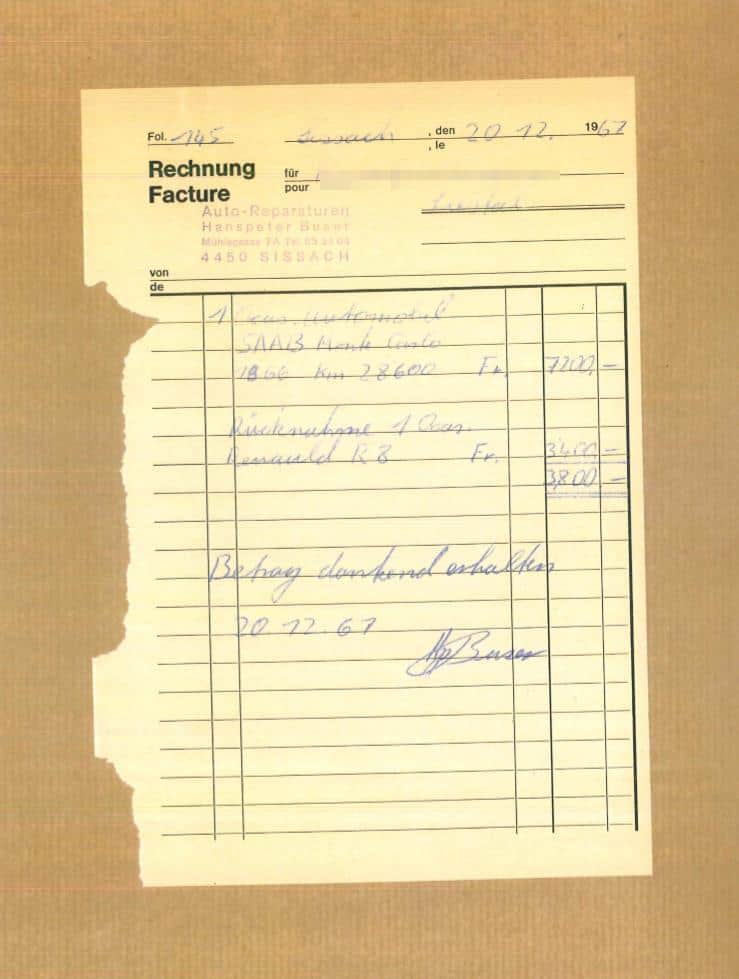 Fol. 145 Sissach , den 20. 12. 1967
, le
Rechnung für
Facture pour
Liestal
Auto-Reparaturen
Hanspeter Buser
Mühlegasse 7A Tel. 85
4450 SISSACH
von
de
1 Occas. Automobil
SAAB Monte Carlo
1966 Km 28600 Fr. 7200.–
Rücknahme 1 Occas.
Renauld R 8 Fr. 3'400.–
3,800.–
Betrag dankend erhalten
20.12.67
Hp Buser